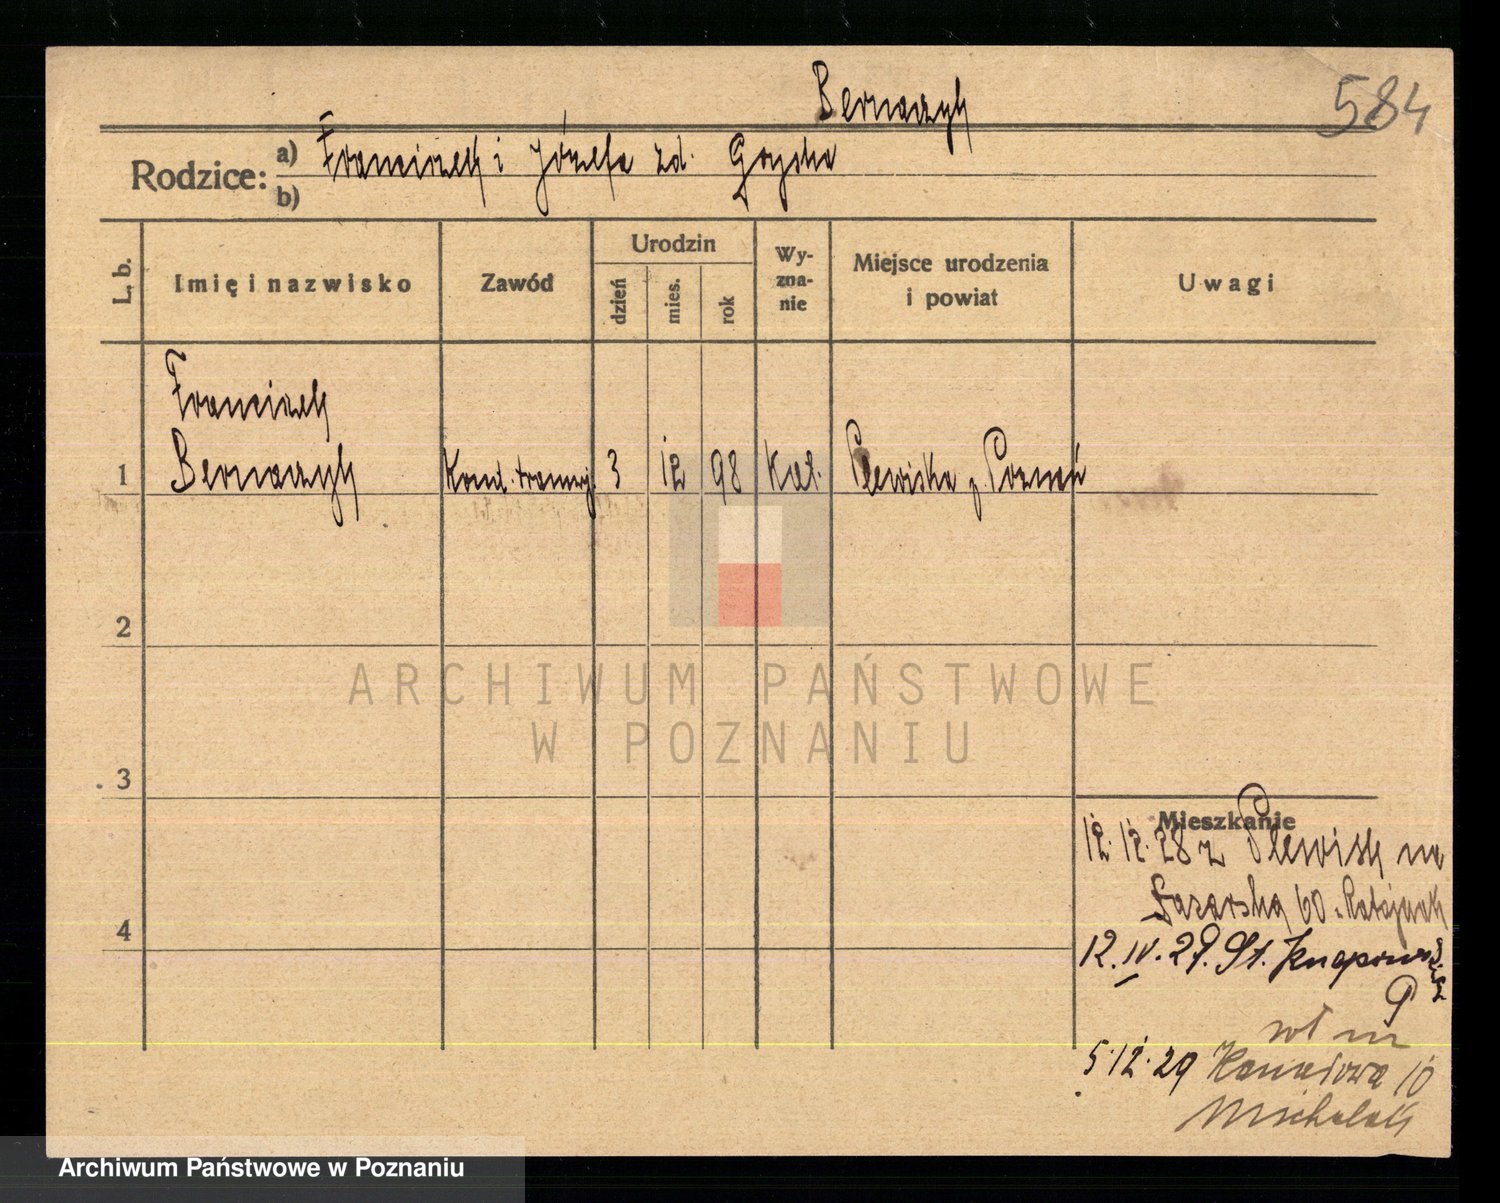 Bernaczyk
584
Rodzice: a) Franciszek i Józefa zd. Gryska
b)
L. b. Imię i nazwisko Zawód Urodzin dzień mies. rok Wy-zna-nie Miejsce urodzenia i powiat Uwagi
Franciszek
1 Bernaczyk Kond. tramwj. 3 12 98 Kat. Plewiska p. Poznań
2
ARCHIWUM PAŃSTWOWE
W POZNANIU
3
Mieszkanie
12.12.28 z Plewisk na
Łazarska 60
4
12.IV.29. St. Knapows
9
5.12.29 Kanałowa 10
Michalak
Archiwum Państwowe w Poznaniu